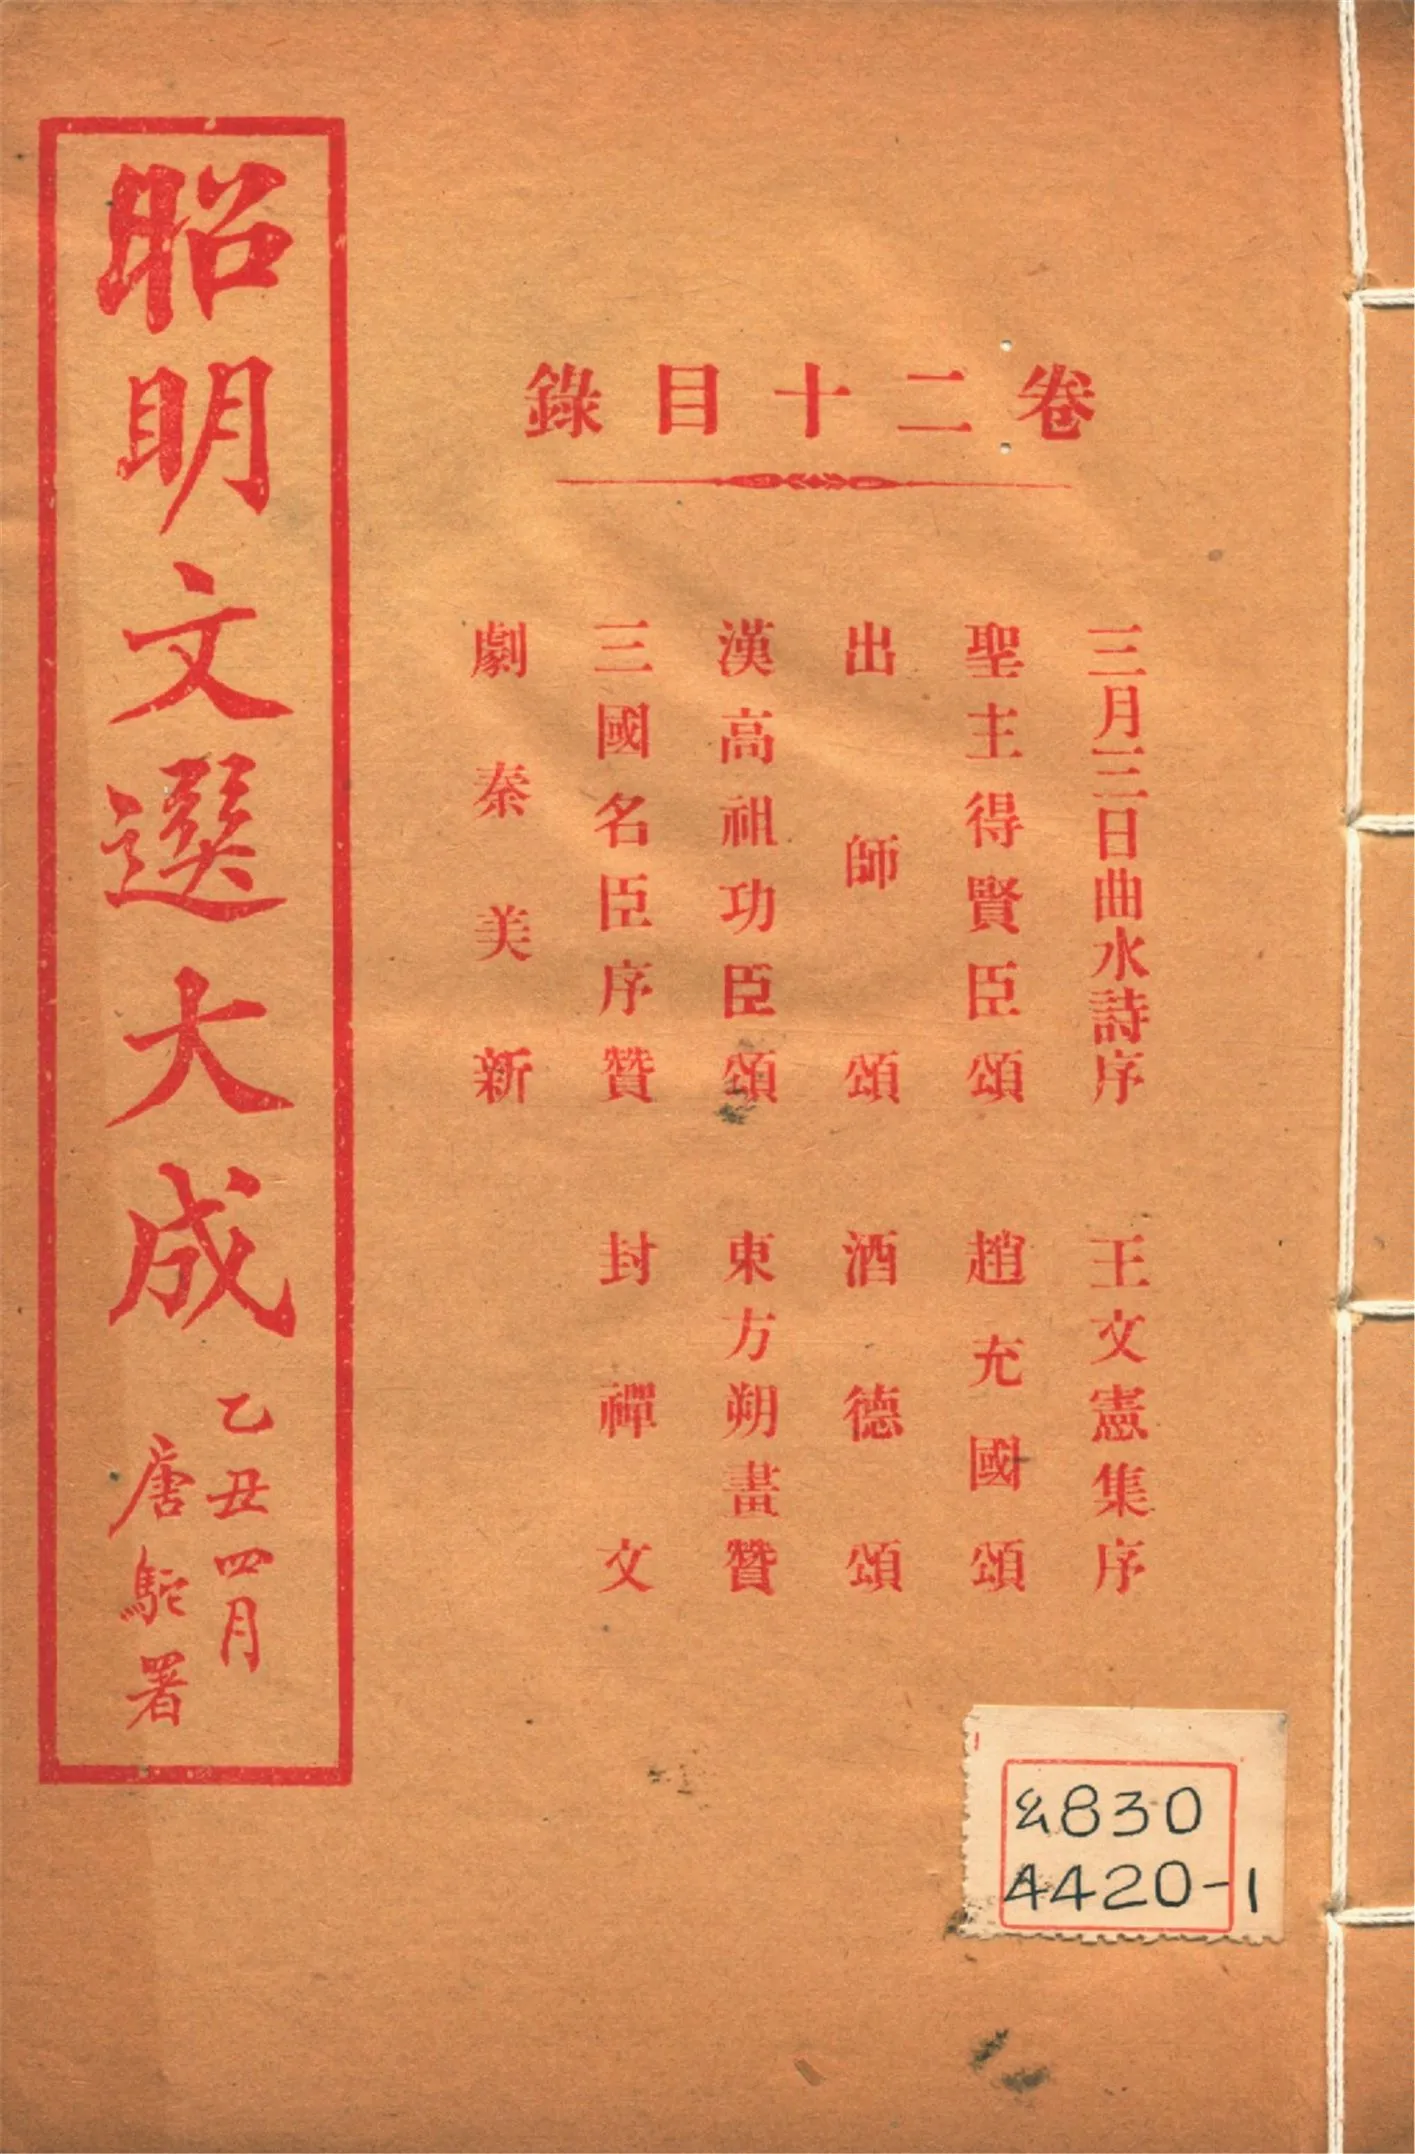 卷二十目錄
三月三日曲水詩序 王文憲集序
聖主得賢臣頌 趙充國頌
出師頌 酒德頌
漢高祖功臣頌 東方朔畫贊
三國名臣序贊 封禪文
劇秦美新
昭明文選大成
乙丑四月
唐駝署
830
4420-1